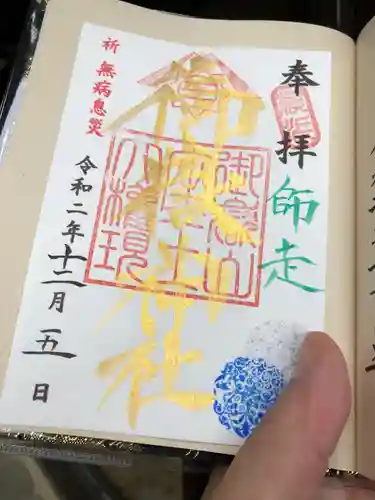 奉拝
師走
御嶽神社
御嶽山
大権現
祈 無病息災
令和二年十二月五日